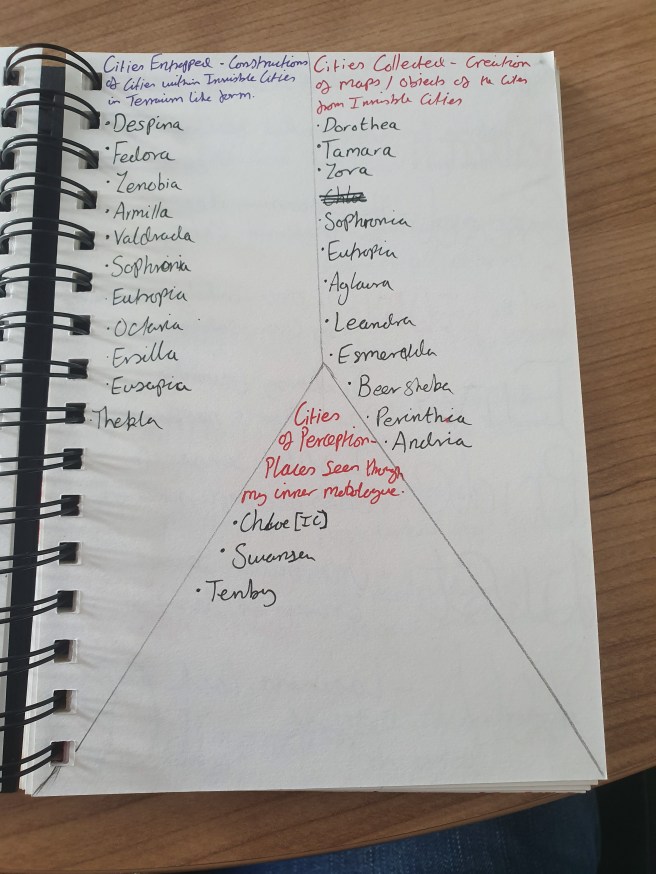 Cities Entrapped - Constructions
of Cities within Invisible Cities
in Terrarium like form.
· Despina
· Fedora
· Zenobia
· Armilla
· Valdrada
· Sophronia
· Eutropia
· Octavia
· Ersilla
· Eusapia
· Thekla
Cities Collected - Creation
of maps / Objects of the Cities
from Invisible Cities
· Dorothea
· Tamara
· Zora
Chloe
· Sophronia
· Eutropia
· Aglaura
· Leandra
· Esmeralda
· Beersheba
· Perinthia
· Andria
Cities
of Perception -
Places seen through
my inner
· Chloe [IC]
· Swansea
· Tenby